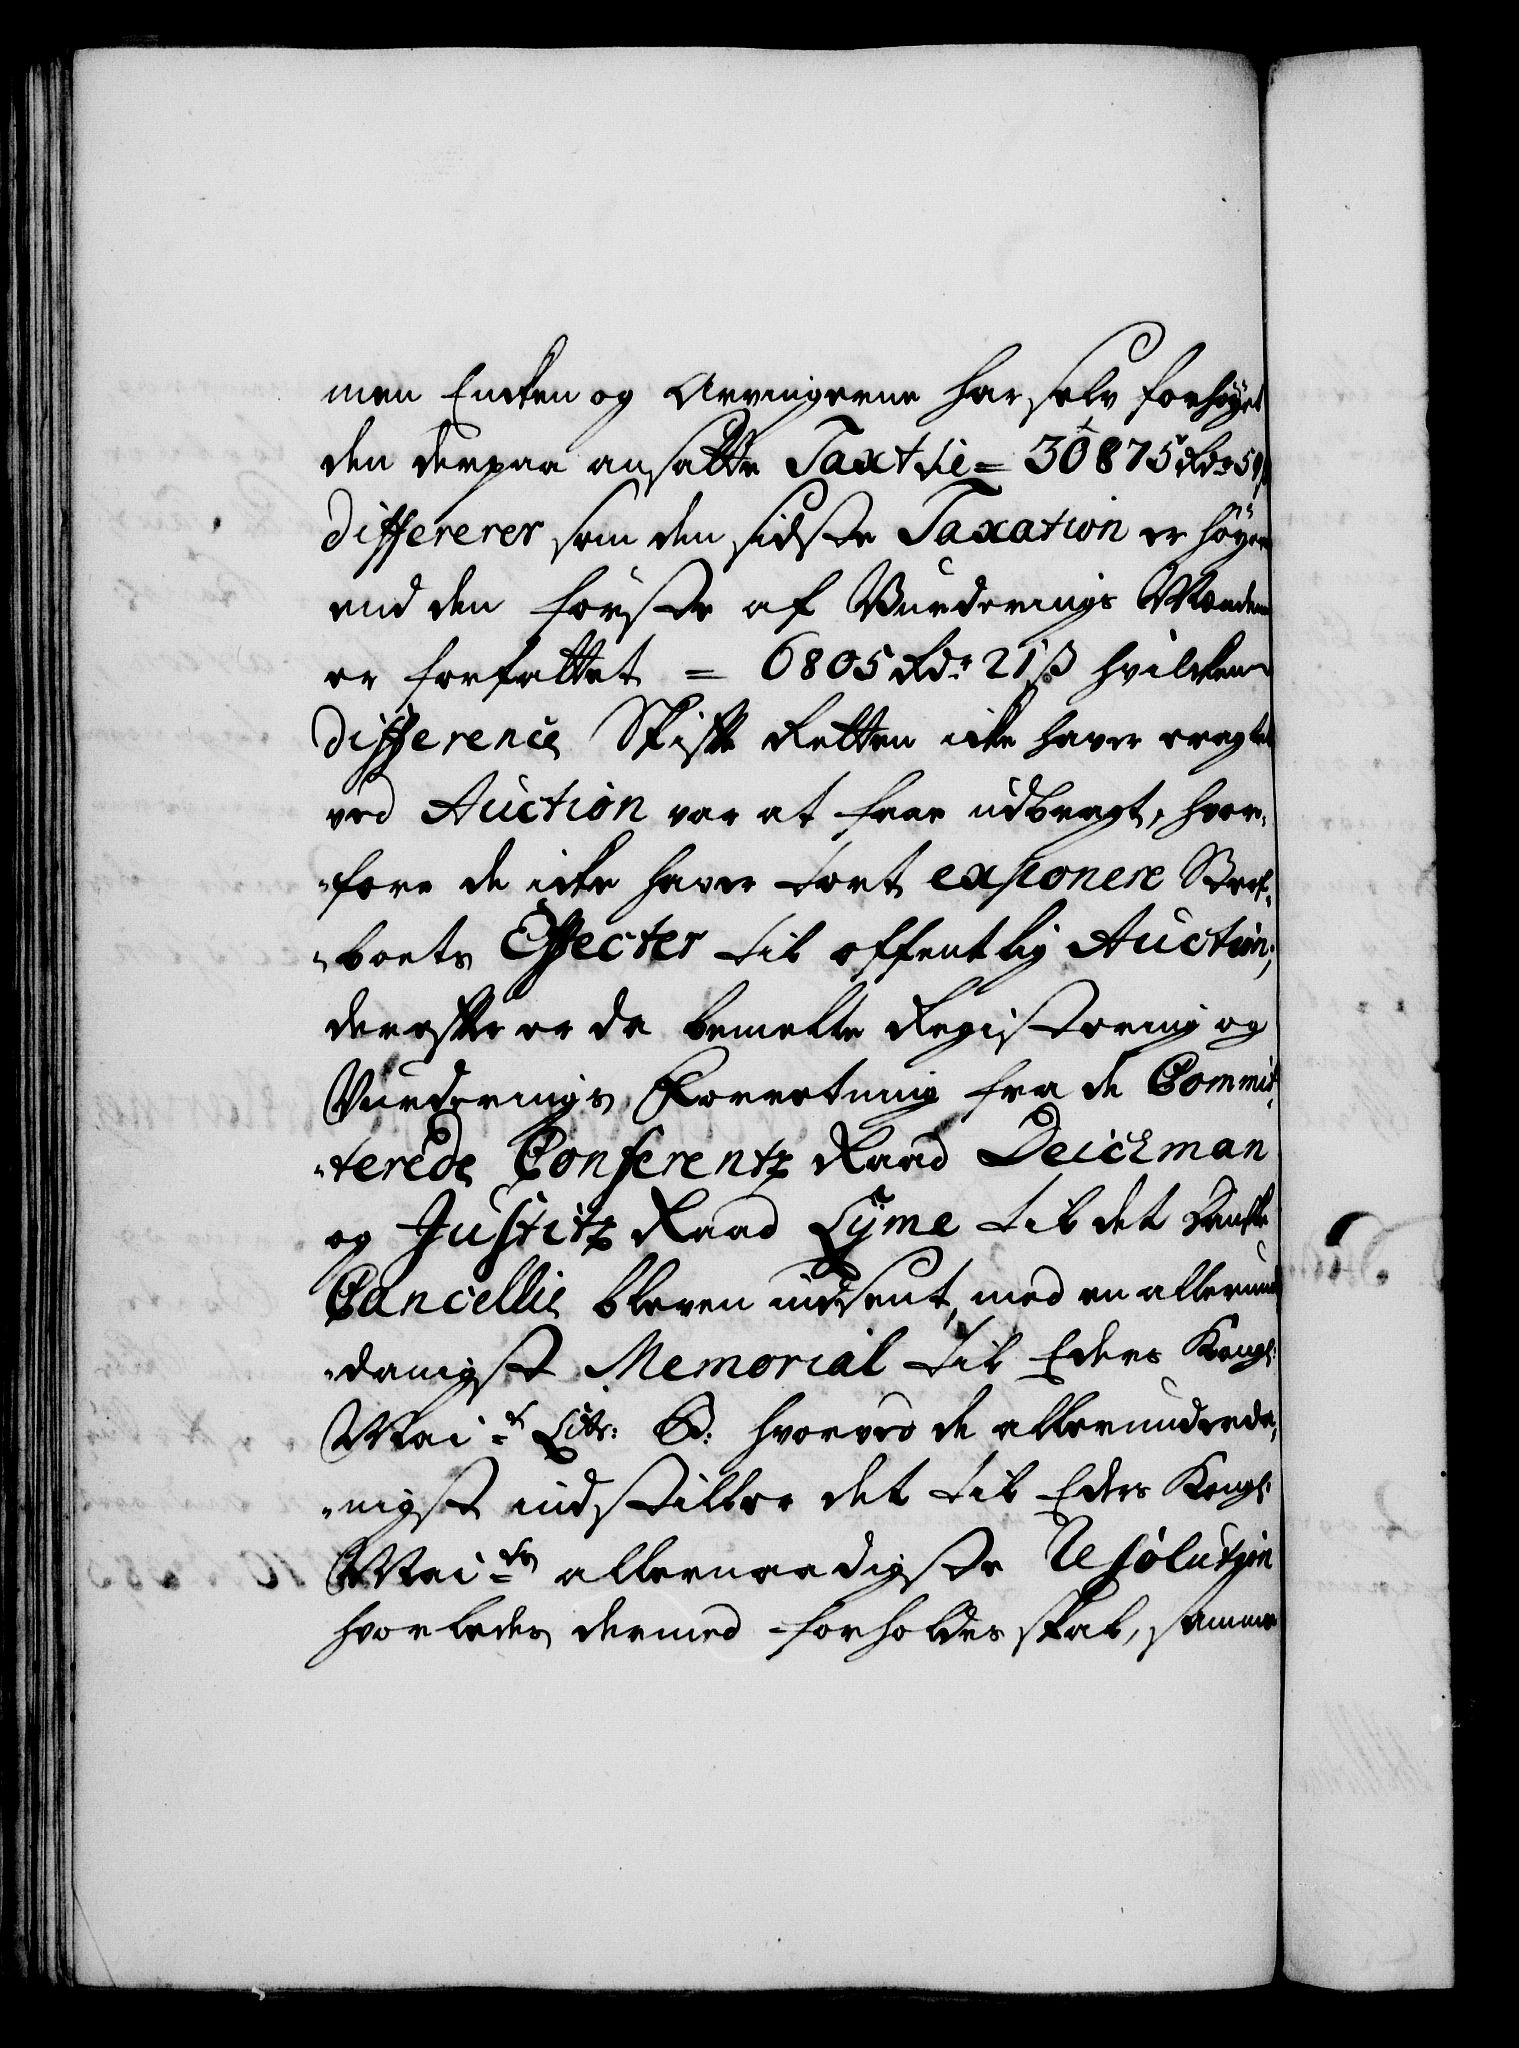 men Encken og Arvingerne har selv forhøyet
den derpaa ansatte Taxt die = 30875 Rdr 59 ß
differerer som den sidste Taxation er høyere
end den første af Vurderings Mændene
er forfattet = 6805 Rdr 21 ß hvilcken
difference Skifte Retten icke haver eragtet
ved Auction var at faae udbragt, hvor-
-fore de icke haver tort exponere Sterf-
-boets Effecter til offentlig Auction;
derefter er da bemelte Registering og
Vurderings Forretning fra de Commit-
-terede Conferentz Raad Deichman
og Justitz Raad Lÿme til det danske
Cancellie bleven indsent, med en allerun-
-danigst Memorial til Eders Kongl:
Mai:t Litr: B: hvorved de allerunderda-
-nigst indstiller det til Eders Kongl:
Mai:ts allernaadigste Resolution
hvorledes dermed forholdes skal, samme